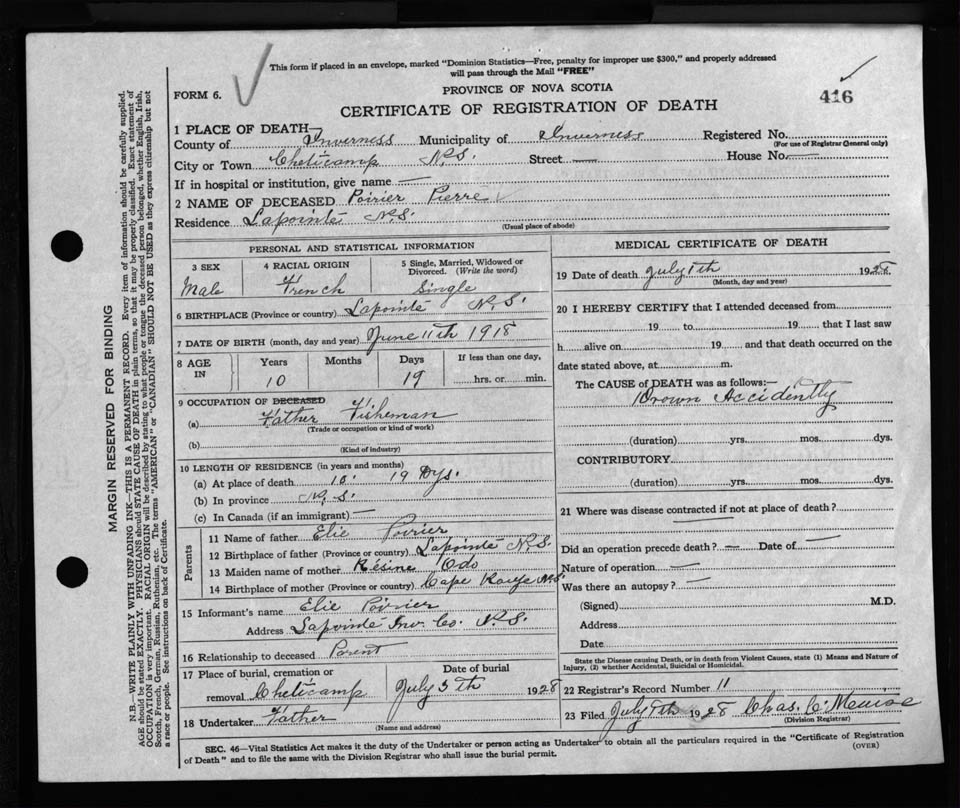 This form if placed in an envelope, marked "Dominion Statistics—Free, penalty for improper use $300," and properly addressed
will pass through the Mail "FREE"
FORM 6.
PROVINCE OF NOVA SCOTIA
416
CERTIFICATE OF REGISTRATION OF DEATH
1 PLACE OF DEATH—
County of Inverness Municipality of Inverness Registered No.
(For use of Registrar General only)
City or Town Cheticamp N.S. Street — House No. —
If in hospital or institution, give name —
2 NAME OF DECEASED Poirier Pierre
Residence Lapointe N.S.
(Usual place of abode)
PERSONAL AND STATISTICAL INFORMATION
3 SEX 4 RACIAL ORIGIN 5 Single, Married, Widowed or
Divorced. (Write the word)
Male French Single
6 BIRTHPLACE (Province or country) Lapointe N.S.
7 DATE OF BIRTH (month, day and year) June 11th 1918
8 AGE IN Years Months Days If less than one day,
10 19 hrs. or min.
9 OCCUPATION OF DECEASED
(a) Father Fisheman
(Trade or occupation or kind of work)
(b)
(Kind of industry)
10 LENGTH OF RESIDENCE (in years and months)
(a) At place of death 10. 19 Dys.
(b) In province N.S.
(c) In Canada (if an immigrant) —
Parents
11 Name of father Elie Poirier
12 Birthplace of father (Province or country) Lapointe N.S.
13 Maiden name of mother Odo
14 Birthplace of mother (Province or country) Cape N.S.
15 Informant's name Elie Poirier
Address Lapointe Inv. Co. N.S.
16 Relationship to deceased Parent
17 Place of burial, cremation or Date of burial
removal Cheticamp July 5th 1928
18 Undertaker Father
(Name and address)
MEDICAL CERTIFICATE OF DEATH
19 Date of death July 1th 1928
(Month, day and year)
20 I HEREBY CERTIFY that I attended deceased from
19 to 19 that I last saw
h alive on 19 and that death occurred on the
date stated above, at m.
The CAUSE of DEATH was as follows:—
Drown Accidently
(duration) yrs. mos. dys.
CONTRIBUTORY
(duration) yrs. mos. dys.
21 Where was disease contracted if not at place of death?
Did an operation precede death? — Date of —
Nature of operation —
Was there an autopsy? —
(Signed) M.D.
Address
Date
State the Disease causing Death, or in death from Violent Causes, state (1) Means and Nature of
Injury, (2) whether Accidental, Suicidal or Homicidal.
22 Registrar's Record Number 11
23 Filed July 9th 1928 Chas.
(Division Registrar)
SEC. 46—Vital Statistics Act makes it the duty of the Undertaker or person acting as Undertaker to obtain all the particulars required in the "Certificate of Registration
of Death" and to file the same with the Division Registrar who shall issue the burial permit.
(OVER)
MARGIN RESERVED FOR BINDING
N.B.—WRITE PLAINLY WITH UNFADING INK—THIS IS A PERMANENT RECORD. Every item of information should be carefully supplied.
AGE should be stated EXACTLY. PHYSICIANS should STATE CAUSE OF DEATH in plain terms, so that it may be properly classified. Exact statement of
OCCUPATION is very important. RACIAL ORIGIN will be described by stating to what people or tongue the deceased person belonged, whether English, Irish,
Scotch, French, German, Russian, Ruthenian, etc. The terms "AMERICAN" or "CANADIAN" SHOULD NOT BE USED as they express citizenship but not
a race or people. See instructions on back of Certificate.